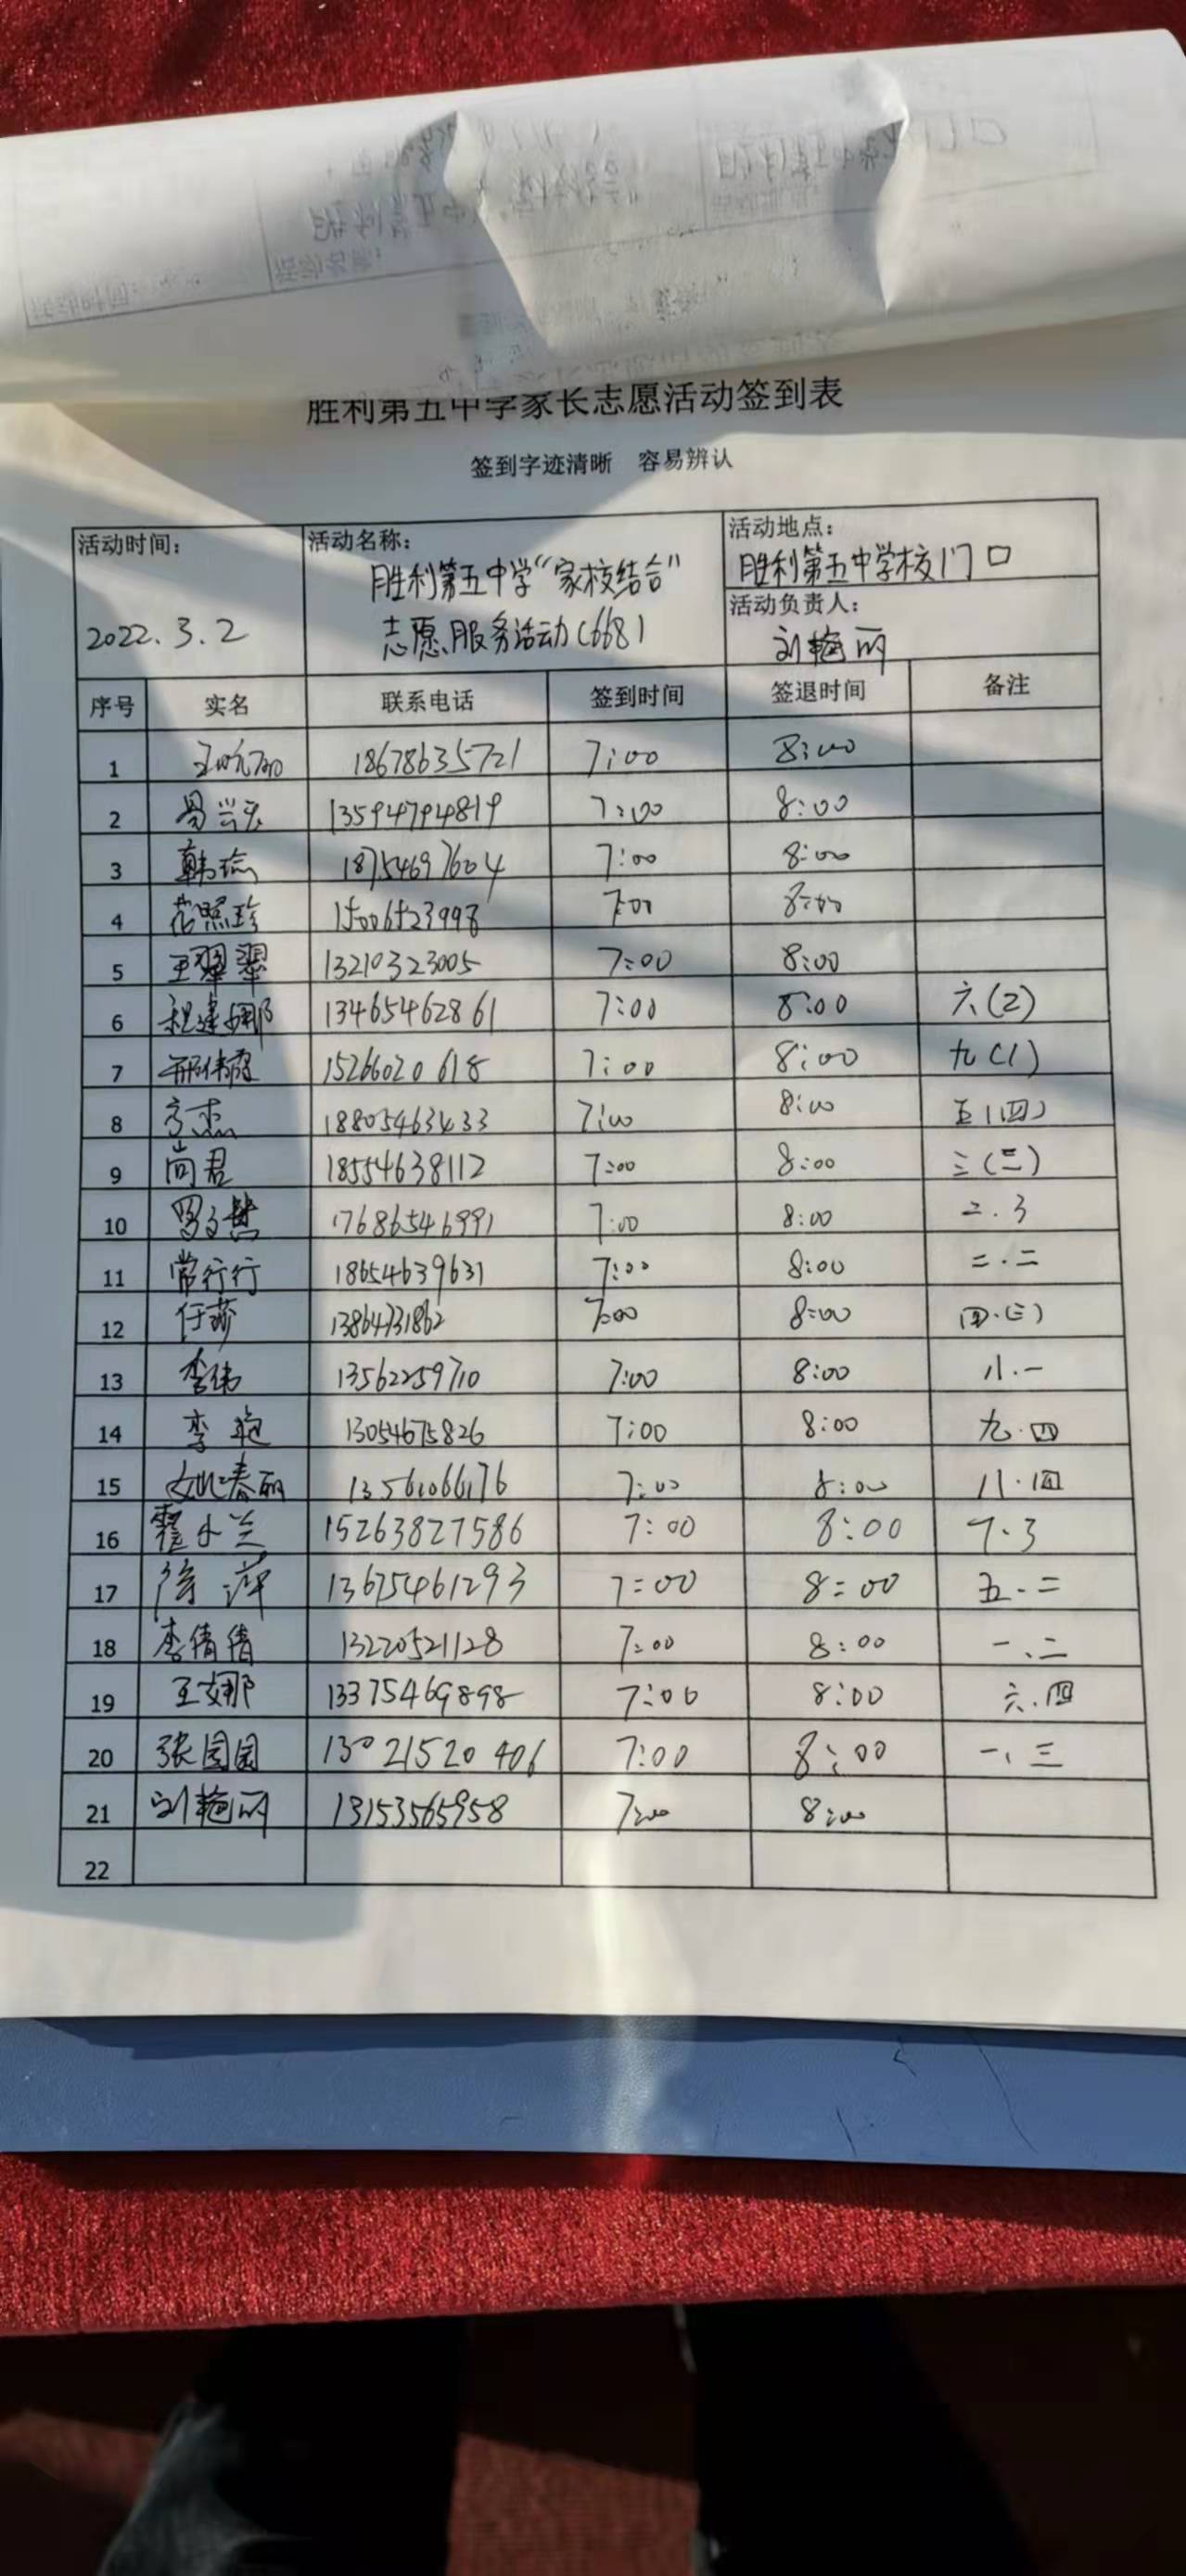 胜利第五中学家长志愿活动签到表
签到字迹清晰 容易辨认
活动时间: 2022.3.2
活动名称: 胜利第五中学“家校结合”
志愿服务活动(668)
活动地点: 胜利第五中学校门口
活动负责人: 刘艳丽
序号 实名 联系电话 签到时间 签退时间 备注
1 18678635721 7:00 8:00
2 13594794819 7:00 8:00
3 韩瑜 18754697604 7:00 8:00
4 范照珍 15006523998 7:00 8:00
5 王翠翠 13210323005 7:00 8:00
6 程建娜 13465462861 7:00 8:00 六(2)
7 邢伟霞 15266020618 7:00 8:00 九(1)
8 方杰 18805463433 7:00 8:00 五(四)
9 尚君 18554638112 7:00 8:00 三(三)
10 17686546991 7:00 8:00 二.3
11 常行行 18654639631 7:00 8:00 二.二
12 任莎 13864731862 7:00 8:00 四.(三)
13 李伟 13562259710 7:00 8:00 八.一
14 李艳 13054675826 7:00 8:00 九.四
15 姚春丽 13561066176 7:00 8:00 八.四
16 翟小兰 15263827586 7:00 8:00 7.3
17 徐萍 13675461293 7:00 8:00 五.二
18 李倩倩 13220521128 7:00 8:00 一、二
19 王娜 13375469898 7:00 8:00 六.四
20 张园园 13021520406 7:00 8:00 一、三
21 刘艳丽 13153565958 7:00 8:00
22